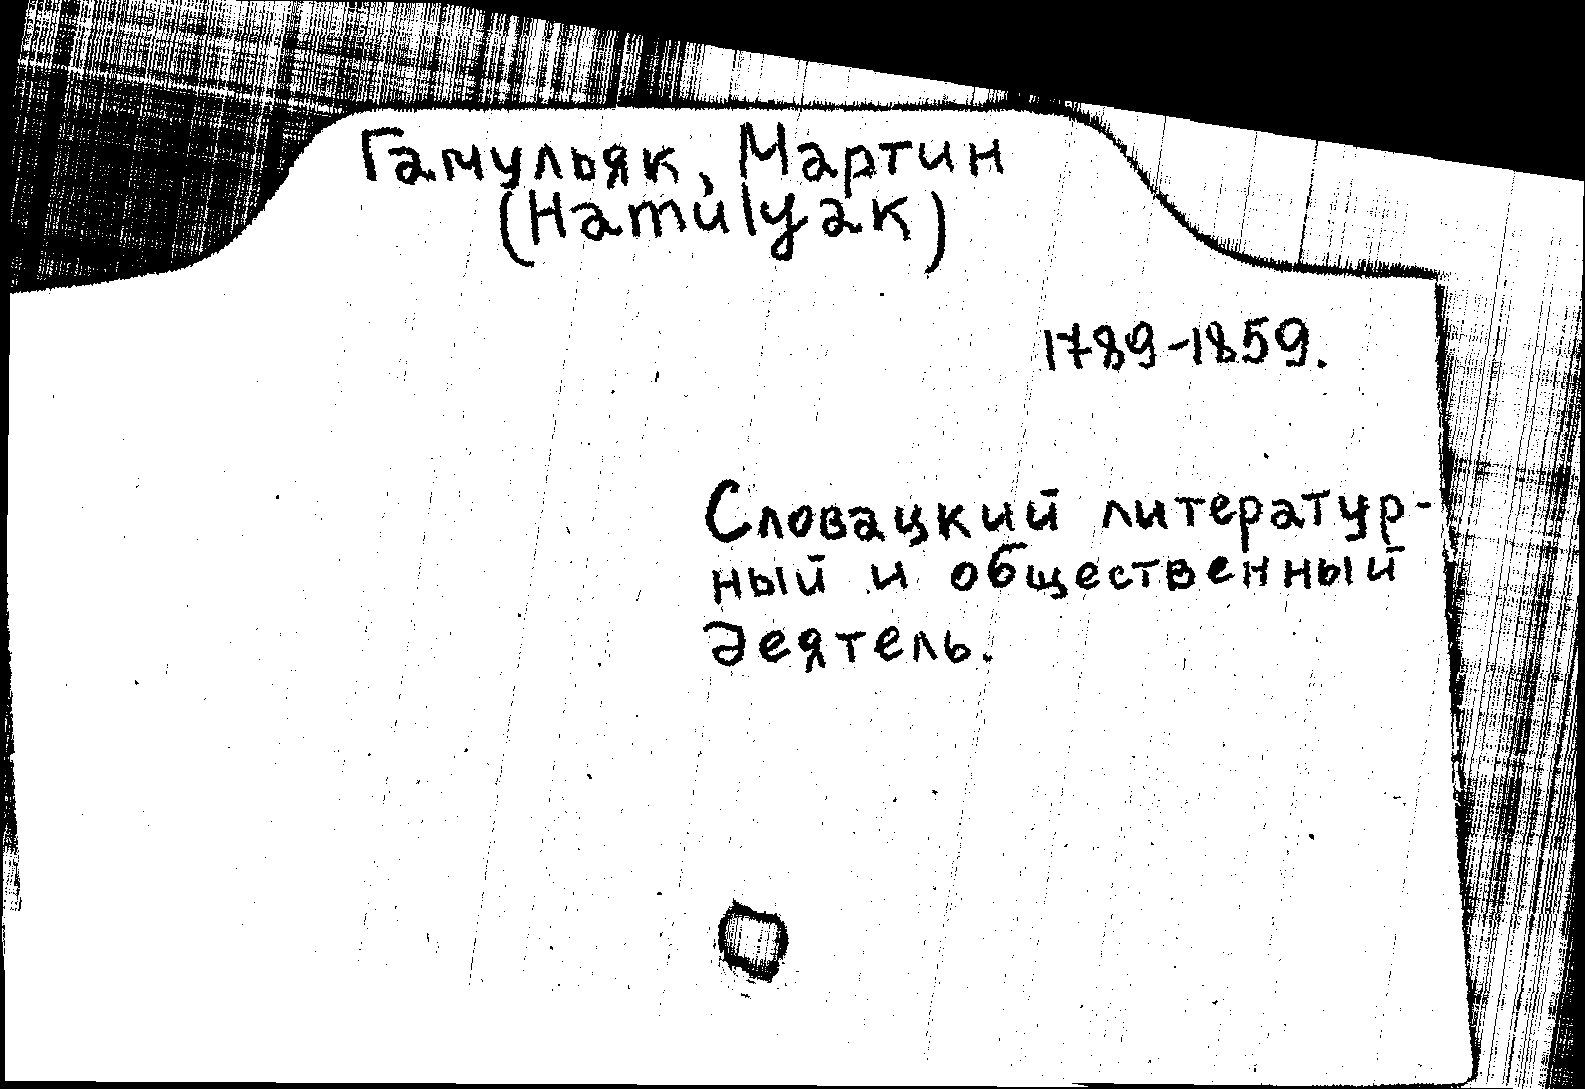 Гамульяк, Мартин
(Hamulyak)
1789-1859.
Словацкий литератур-
ный и общественный
деятель.